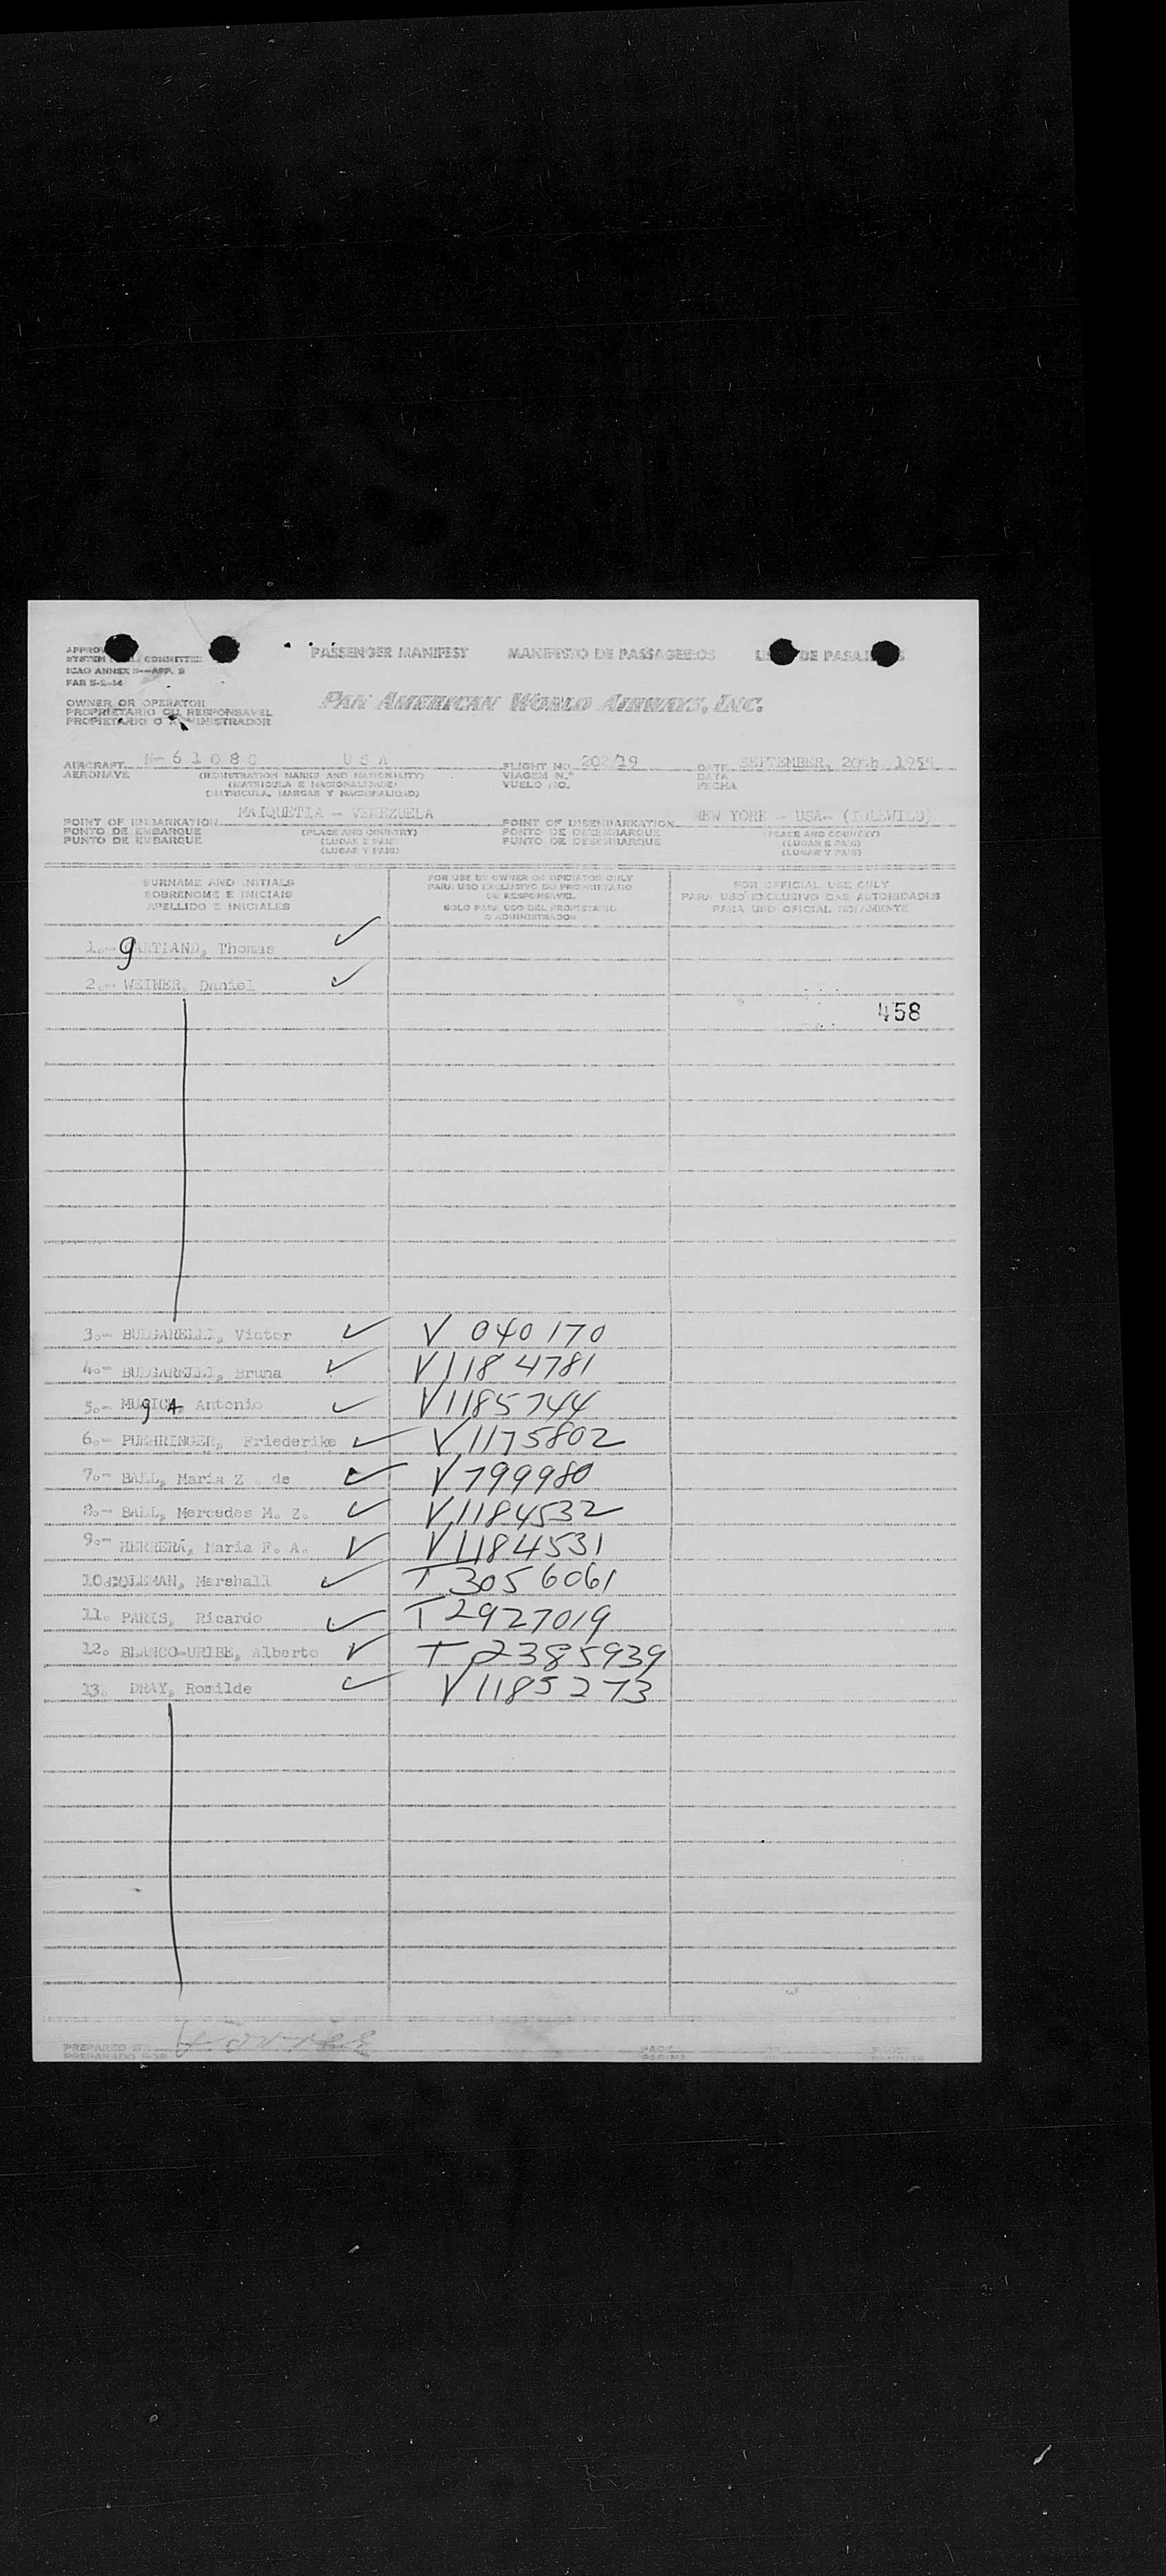 PASSENGER MANIFEST MANIFESTO DE PASSAGEIROS DE
SYSTEM COMMITTEE
ICAO ANNEX 9—APP. 2
OWNER OR OPERATOR
PROPRIETARIO OU RESPONSAVEL
PROPIETARIO O
PAN AMERICAN WORLD AIRWAYS, INC.
AIRCRAFT N-61080 USA FLIGHT NO. 202/19 DATE SEPTEMBER, 20th,
AERONAVE (REGISTRATION MARKS AND NATIONALITY) VIAGEM N.° DATA
(MATRICULA E NACIONALIDADE) VUELO NO. FECHA
(MATRICULA, MARCAS Y NACIONALIDAD)
POINT OF EMBARKATION MAIQUETIA - VENEZUELA POINT OF DISEMBARKATION NEW YORK - USA- (IDLEWILD)
PONTO DE EMBARQUE (PLACE AND COUNTRY) PONTO DE DESEMBARQUE (PLACE AND COUNTRY)
PUNTO DE EMBARQUE (LUGAR E PAIS) PUNTO DE DESEMBARQUE (LUGAR E PAIS)
(LUGAR Y PAIS) (LUGAR Y PAIS)
SURNAME AND INITIALS FOR USE BY OWNER OR OPERATOR ONLY FOR OFFICIAL USE ONLY
SOBRENOME E INICIAIS PARA USO EXCLUSIVO DO PROPRIETARIO PARA USO EXCLUSIVO DAS AUTORIDADES
APELLIDO E INICIALES OU RESPONSAVEL PARA USO OFICIAL SOLAMENTE
SOLO PARA USO DEL PROPIETARIO
O ADMINISTRADOR
1.- gARTLAND, Thomas ✓
2.- WEINER, Daniel ✓
458
3.- BULGARELLI, Victor ✓ V 040170
4.- BULGARELLI, Bruna ✓ V1184781
5.- Antonio ✓ V1185744
6.- PUEHRINGER, Friederike ✓ V1175802
7.- BALL, Maria Z. de ✓ V799980
8.- BALL, Mercedes M. Z. ✓ V1184532
9.- HERRERA, Maria F. A. ✓ V1184531
10.-COLEMAN, Marshall ✓ T 3056061
11. PARIS, Ricardo ✓ T 2927019
12. BLANCO-URIBE, Alberto ✓ T 2385939
13. DRAY, Romilde ✓ V1185273
PREPARED BY